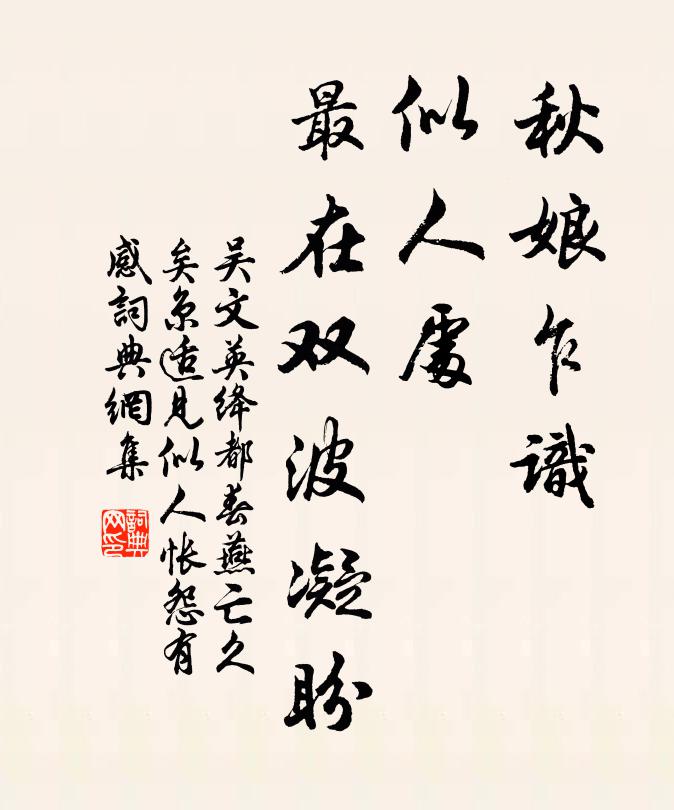 秋娘乍識
似人處
最在双波凝盼
吴文英绛都春燕亡久
矣京适見似人怅怨有
感詞典網集
詞典
网印